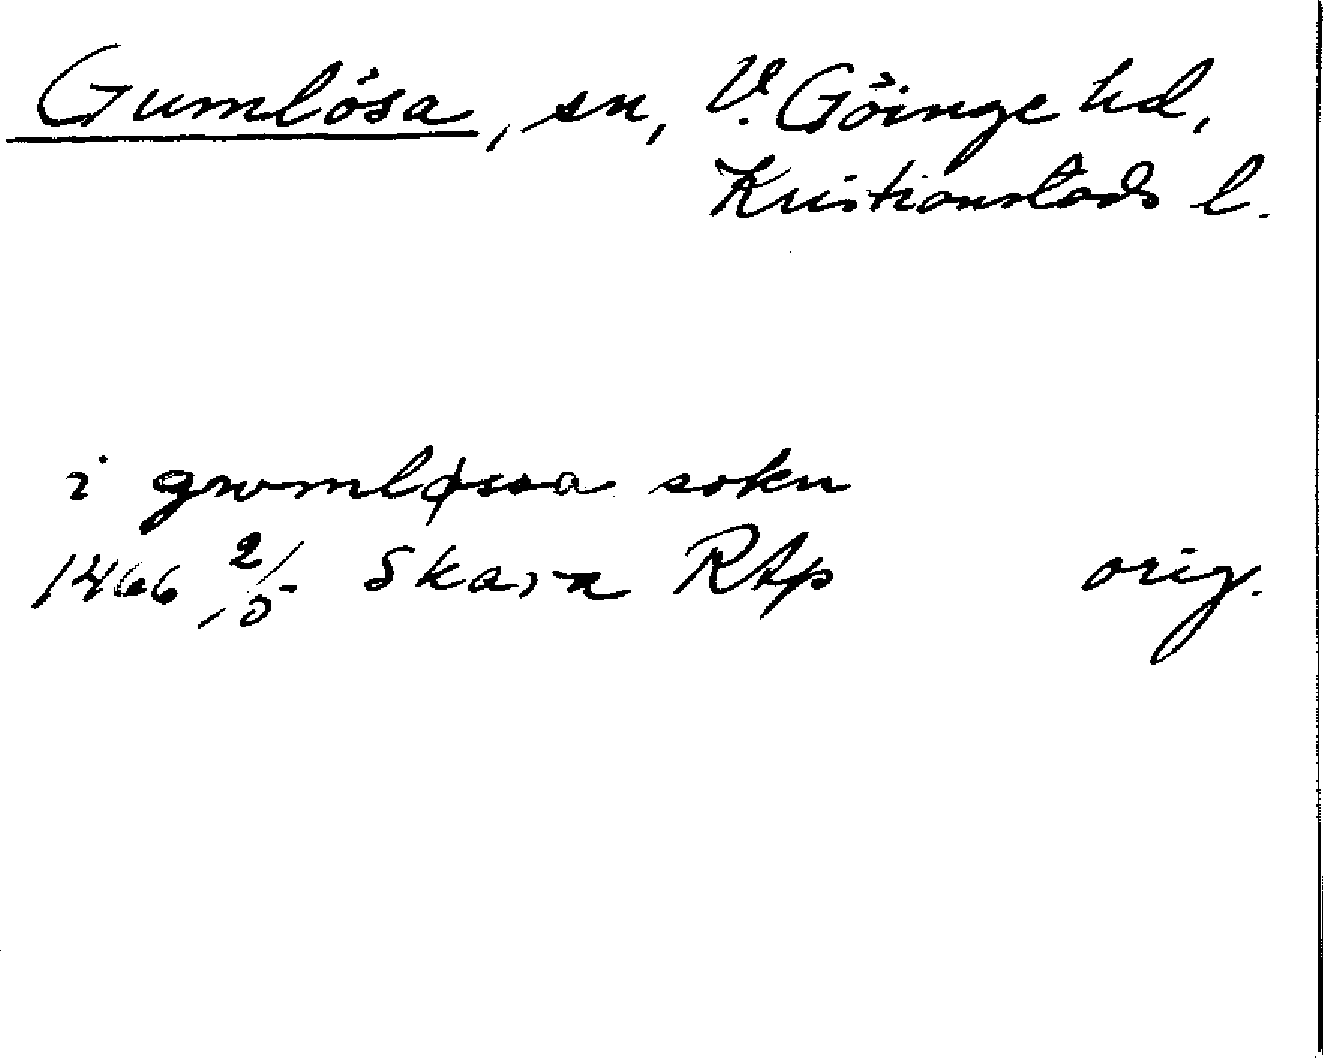 Gumlösa, sn, V. Göinge hd,
Kristianstads l.
i gwmløssa sokn
1466 2/10 Skara RAp orig.